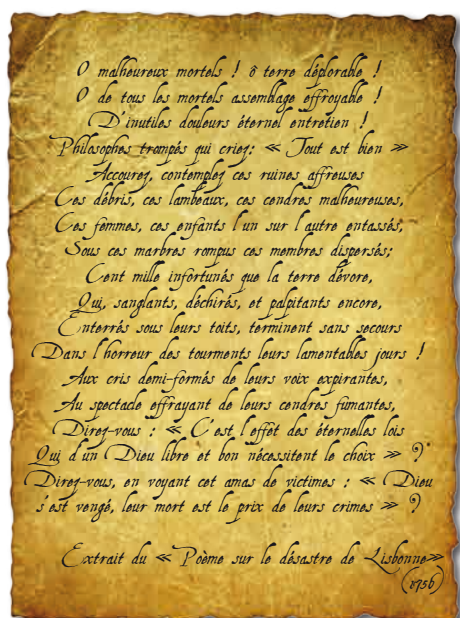 O malheureux mortels ! ô terre déplorable !
O de tous les mortels assemblage effroyable !
D'inutiles douleurs éternel entretien !
Philosophes trompés qui criez: « Tout est bien »
Accourez, contemplez ces ruines affreuses
Ces débris, ces lambeaux, ces cendres malheureuses,
Ces femmes, ces enfants l'un sur l'autre entassés,
Sous ces marbres rompus ces membres dispersés;
Cent mille infortunés que la terre dévore,
Qui, sanglants, déchirés, et palpitants encore,
Enterrés sous leurs toits, terminent sans secours
Dans l'horreur des tourments leurs lamentables jours !
Aux cris demi-formés de leurs voix expirantes,
Au spectacle effrayant de leurs cendres fumantes,
Direz-vous : « C'est l'effet des éternelles lois
Qui d'un Dieu libre et bon nécessitent le choix » ?
Direz-vous, en voyant cet amas de victimes : « Dieu
s'est vengé, leur mort est le prix de leurs crimes » ?
Extrait du « Poème sur le désastre de Lisbonne»
(1756)